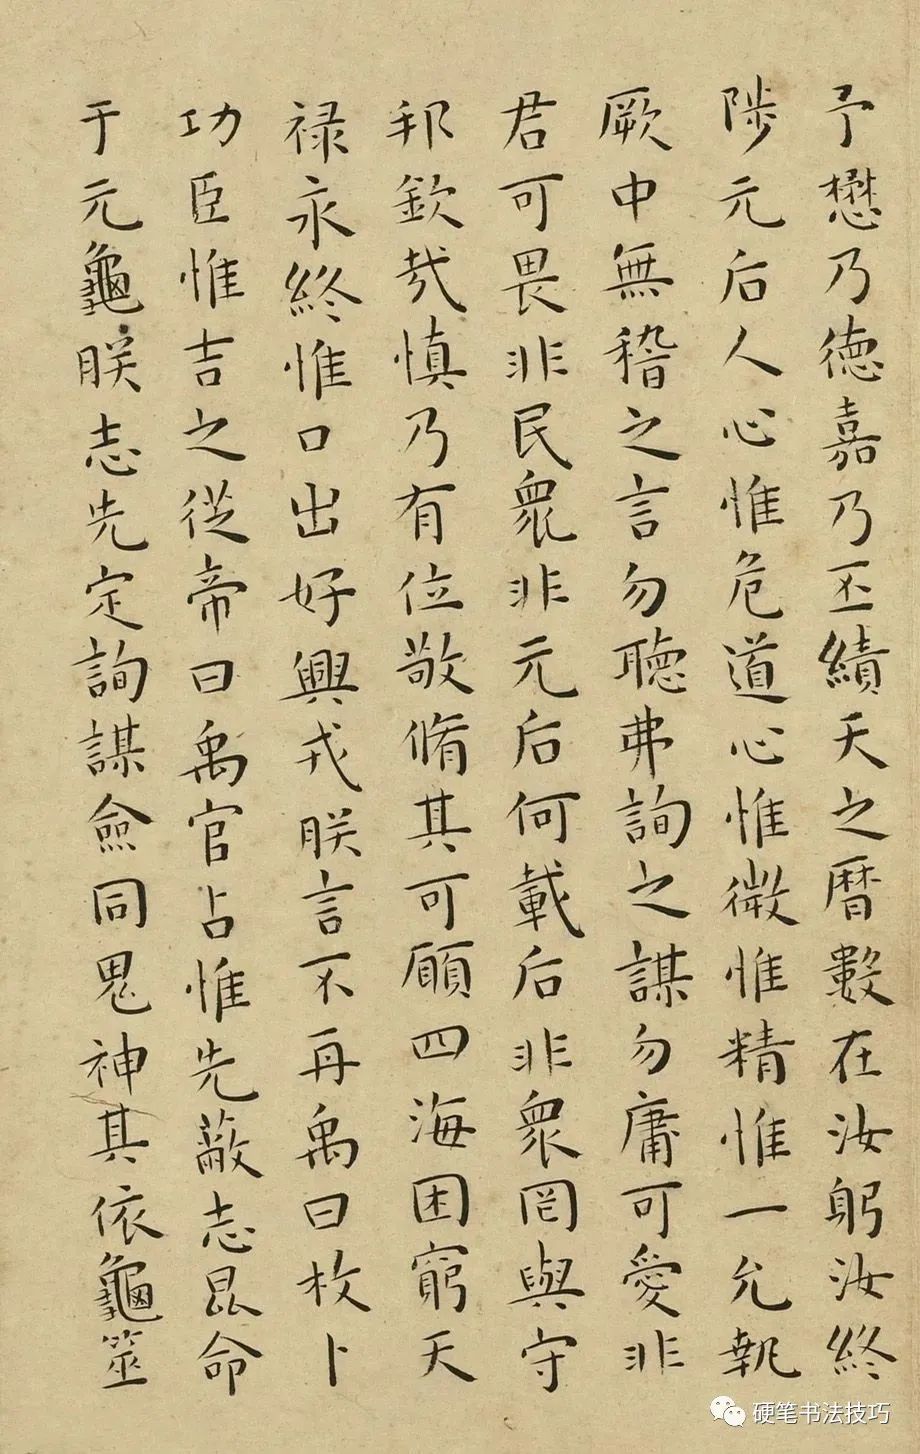 予懋乃德嘉乃丕績天之曆數在汝躬汝終
陟元后人心惟危道心惟微惟精惟一允執
厥中無稽之言勿聽弗詢之謀勿庸可愛非
君可畏非民衆非元后何載后非衆罔與守
邦欽哉慎乃有位敬脩其可願四海困窮天
禄永終惟口出好興戎朕言不再禹曰枚卜
功臣惟吉之從帝曰禹官占惟先蔽志昆命
于元龜朕志先定詢謀僉同鬼神其依龜筮
硬笔书法技巧